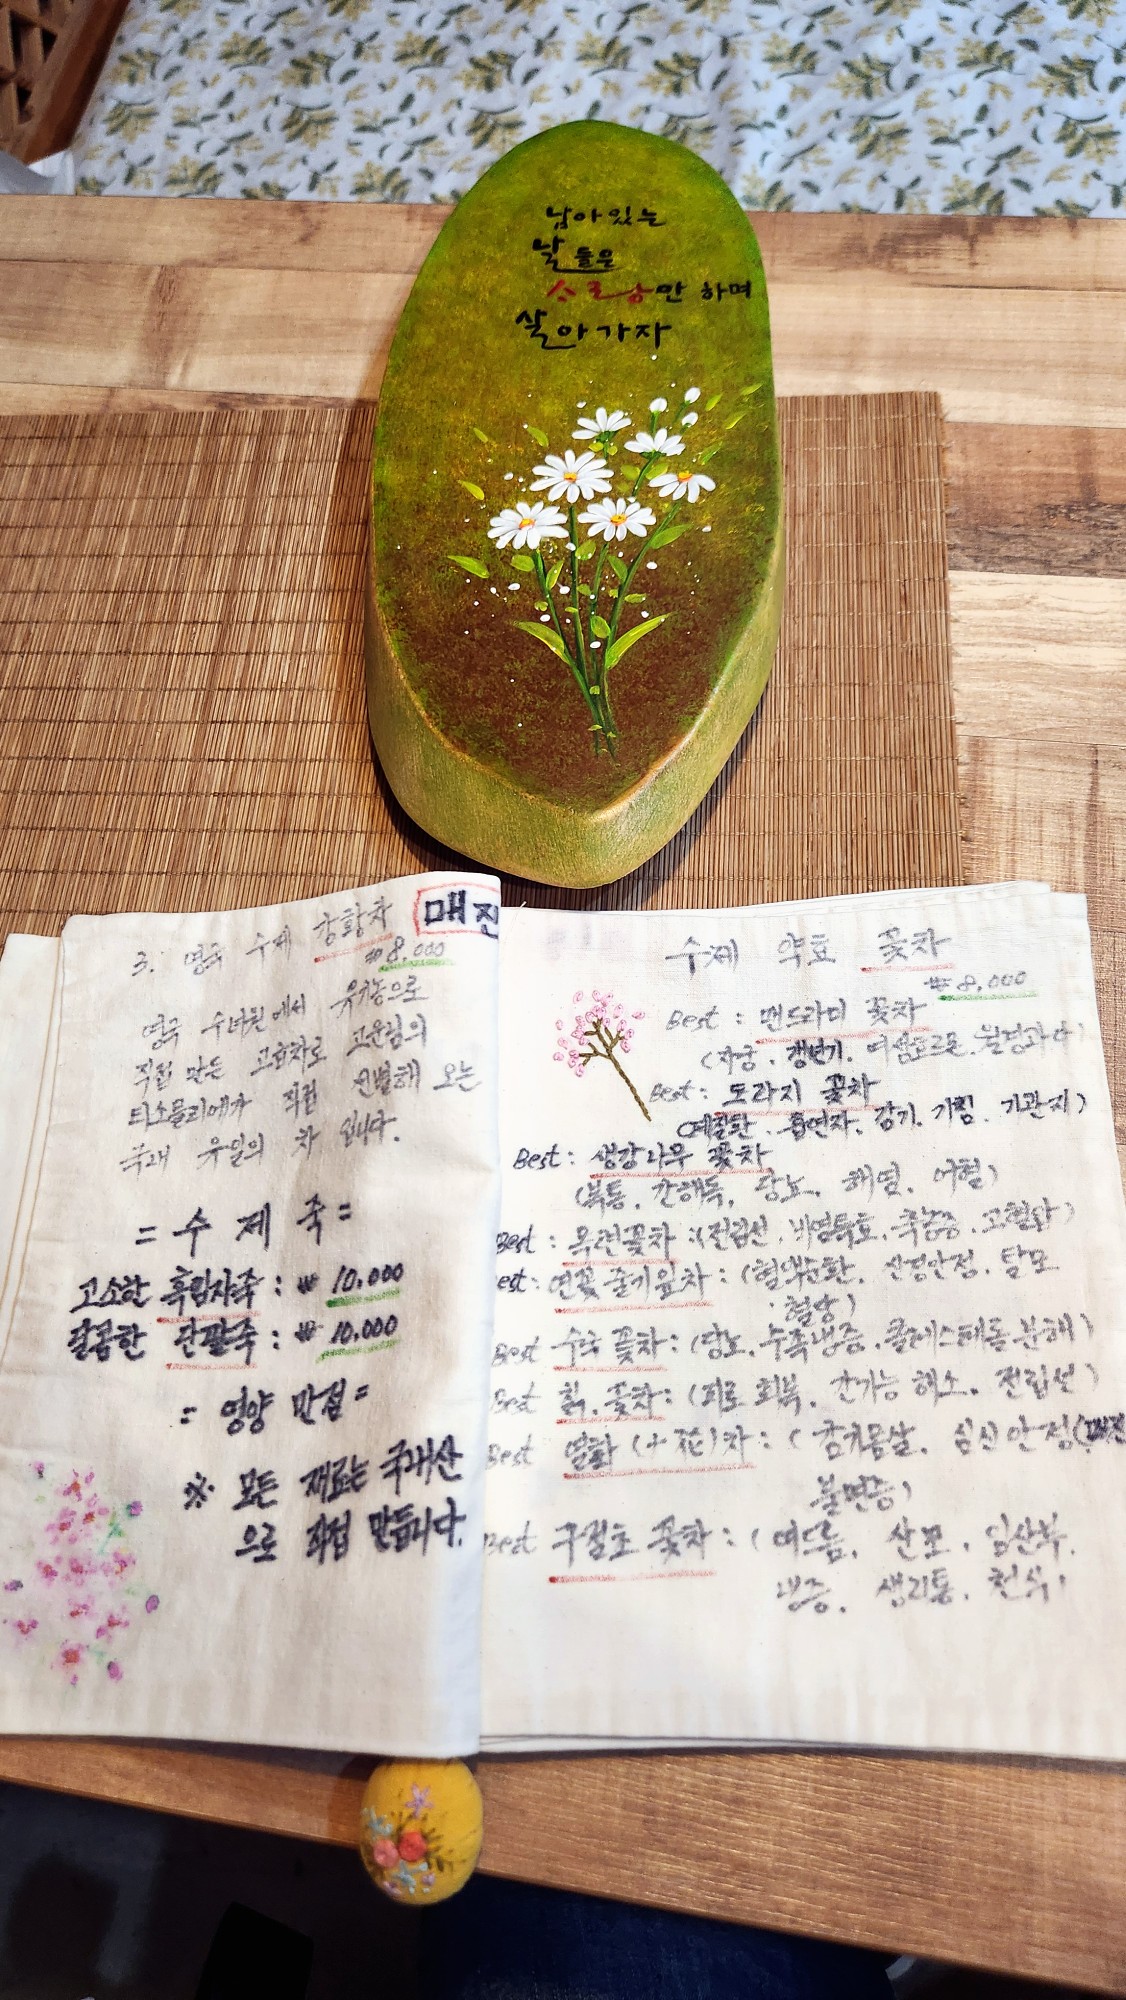 남아있는
날들은
사랑만 하며
살아가자
매진
3. 영국 수제 강황차
₩8,000
영국 수녀원에서 유기농으로
직접 만든 고효차로 고운님의
티소믈리에가 직접 선별해 오는
국내 유일의 차 입니다.
= 수 제 죽 =
고소한 흑임자죽 : ₩ 10,000
달콤한 단팥죽 : ₩ 10,000
= 영양 만점 =
※ 모든 재료는 국내산
으로 직접 만듭니다.
수제 약효 꽃차
₩8,000
Best : 맨드라미 꽃차
(자궁. 갱년기. 여성호르몬.
Best : 도라지 꽃차
흡연자. 감기. 기침. 기관지)
Best : 생강나무 꽃차
(복통. 간해독. 당뇨. 해열. 어혈)
Best : 목련꽃차 : (전립선. 고혈압)
est : 연꽃 줄기잎차 : (혈액순환. 신경안정. 탈모
Best 수국 꽃차 : (당뇨. 수족냉증. 콜레스테롤 분해)
Best 칡. 꽃차 : (피로 회복. 간기능 해소. 전립선)
Best 열화 (十花)차 : ( 감기몸살. 심신안정(매진
불면증)
Best 구절초 꽃차 : ( 여드름. 산모. 임산부.
냉증. 생리통. 천식)